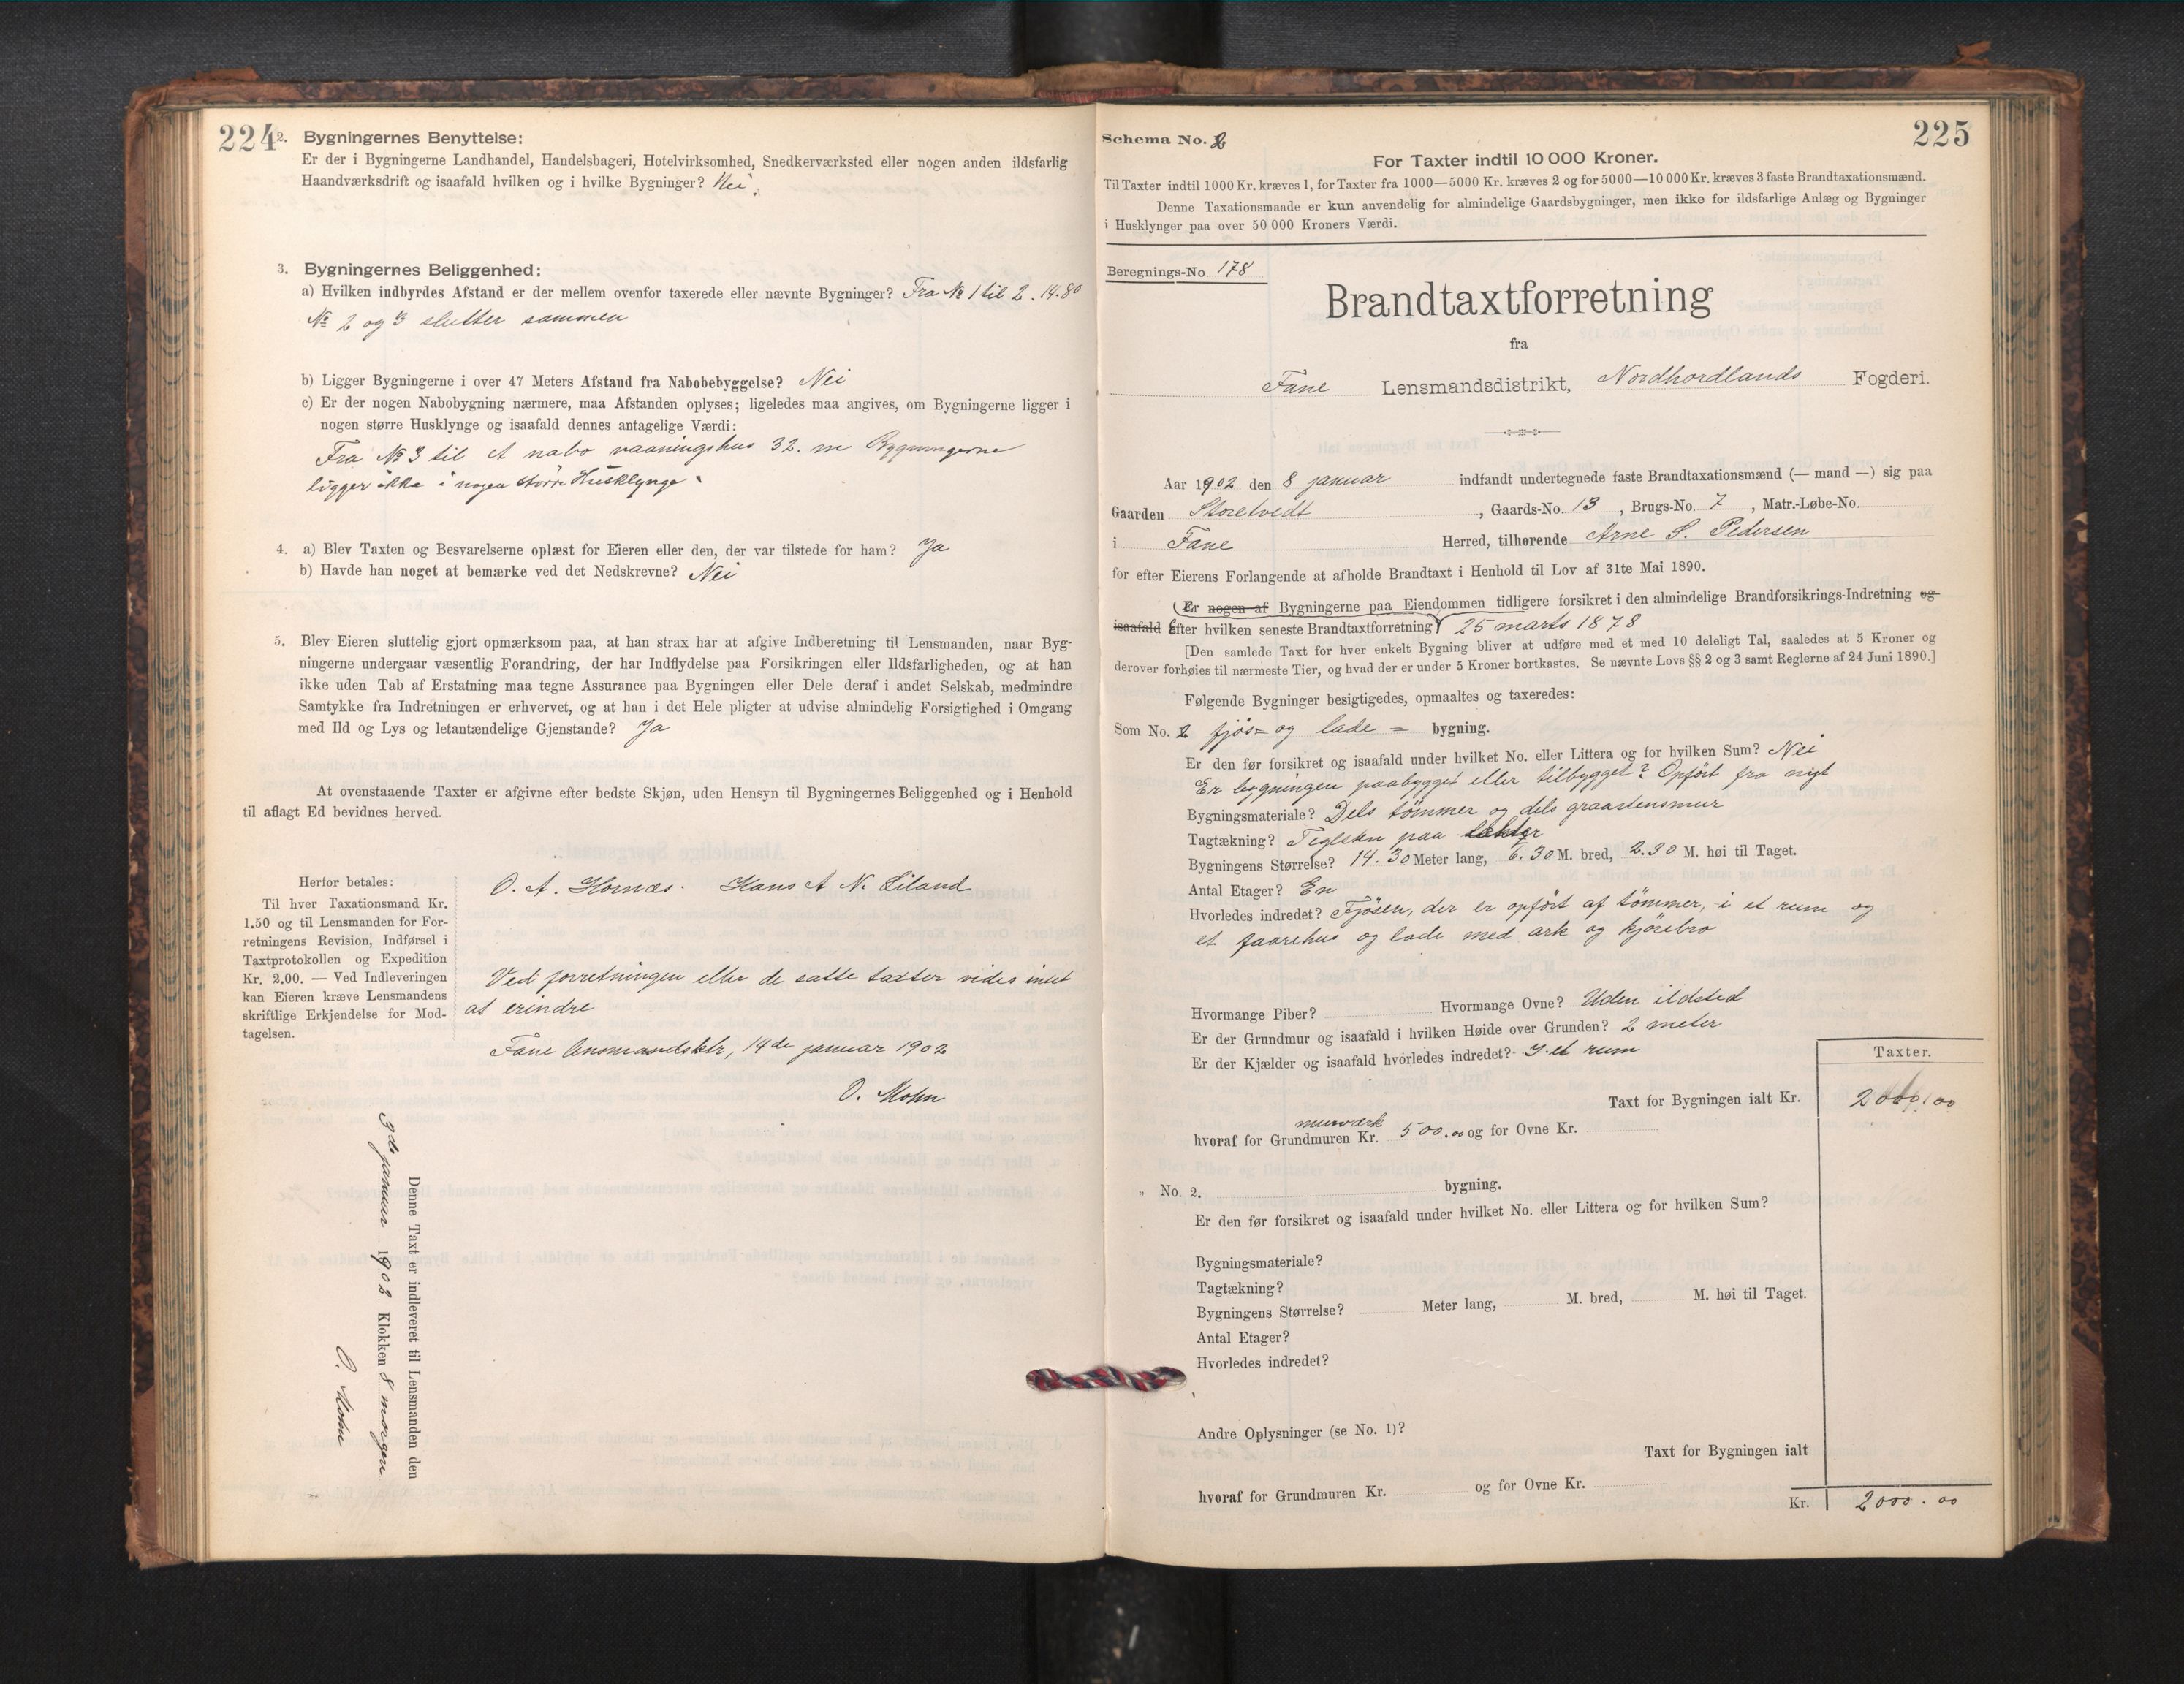 224
2. Bygningernes Benyttelse:
Er der i Bygningerne Landhandel, Handelsbageri, Hotelvirksomhed, Snedkerværksted eller nogen anden ildsfarlig
Haandværksdrift og isaafald hvilken og i hvilke Bygninger? Nei.
3. Bygningernes Beliggenhed:
a) Hvilken indbyrdes Afstand er der mellem ovenfor taxerede eller nævnte Bygninger? Fra № 1 til 2. 14.80
№ 2 og 3 slutter sammen
b) Ligger Bygningerne i over 47 Meters Afstand fra Nabobebyggelse? Nei
c) Er der nogen Nabobygning nærmere, maa Afstanden oplyses; ligeledes maa angives, om Bygningerne ligger i
nogen større Husklynge og isaafald dennes antagelige Værdi:
Fra № 3 til et nabo vaaningshus 32. m Bygningerne
ligger ikke i nogen större Husklynge.
4. a) Blev Taxten og Besvarelserne oplæst for Eieren eller den, der var tilstede for ham? Ja
b) Havde han noget at bemærke ved det Nedskrevne? Nei
5. Blev Eieren sluttelig gjort opmærksom paa, at han strax har at afgive Indberetning til Lensmanden, naar Byg-
ningerne undergaar væsentlig Forandring, der har Indflydelse paa Forsikringen eller Ildsfarligheden, og at han
ikke uden Tab af Erstatning maa tegne Assurance paa Bygningen eller Dele deraf i andet Selskab, medmindre
Samtykke fra Indretningen er erhvervet, og at han i det Hele pligter at udvise almindelig Forsigtighed i Omgang
med Ild og Lys og letantændelige Gjenstande? Ja
At ovenstaaende Taxter er afgivne efter bedste Skjøn, uden Hensyn til Bygningernes Beliggenhed og i Henhold
til aflagt Ed bevidnes herved.
Herfor betales:
Til hver Taxationsmand Kr.
1.50 og til Lensmanden for For-
retningens Revision, Indførsel i
Taxtprotokollen og Expedition
Kr. 2.00. — Ved Indleveringen
kan Eieren kræve Lensmandens
skriftlige Erkjendelse for Mod-
tagelsen.
O. A. Hornæs. Hans A N. Liland
Ved forretningen eller de satte taxter vides intet
at erindre
Fane lensmandsktr, 14de januar 1902
O. Mohn
Denne Taxt er indleveret til Lensmanden den
3de januar 1902 Klokken 8 morgen
O. Mohn
225
Schema No. 2
For Taxter indtil 10 000 Kroner.
Til Taxter indtil 1000 Kr. kræves 1, for Taxter fra 1000—5000 Kr. kræves 2 og for 5000—10 000 Kr. kræves 3 faste Brandtaxationsmænd.
Denne Taxationsmaade er kun anvendelig for almindelige Gaardsbygninger, men ikke for ildsfarlige Anlæg og Bygninger
i Husklynger paa over 50 000 Kroners Værdi.
Beregnings-No. 178
Brandtaxtforretning
fra
Fane Lensmandsdistrikt, Nordhordlands Fogderi.
Aar 1902 den 8 januar indfandt undertegnede faste Brandtaxationsmænd (— mand —) sig paa
Gaarden Storetvedt, Gaards-No. 13, Brugs-No. 7, Matr.-Løbe-No.
i Fane Herred, tilhørende Arne S. Pedersen
for efter Eierens Forlangende at afholde Brandtaxt i Henhold til Lov af 31te Mai 1890.
(Er nogen af Bygningerne paa Eiendommen tidligere forsikret i den almindelige Brandforsikrings-Indretning og
isaafald Efter hvilken seneste Brandtaxtforretning) 25 marts 1878
[Den samlede Taxt for hver enkelt Bygning bliver at udføre med et med 10 deleligt Tal, saaledes at 5 Kroner og
derover forhøies til nærmeste Tier, og hvad der er under 5 Kroner bortkastes. Se nævnte Lovs §§ 2 og 3 samt Reglerne af 24 Juni 1890.]
Følgende Bygninger besigtigedes, opmaaltes og taxeredes:
Som No. 2 fjös= og lade = bygning.
Er den før forsikret og isaafald under hvilket No. eller Littera og for hvilken Sum? Nei
Er bygningen paabygget eller tilbygget? Opfört fra nyt
Bygningsmateriale? Dels tömmer og dels graastensmur
Tagtækning? Teglsten paa lækter
Bygningens Størrelse? 14.30 Meter lang, 6.30 M. bred, 2.30 M. høi til Taget.
Antal Etager? En
Hvorledes indredet? Fjösen, der er opfört af tömmer, i et rum og
et faarehus og lade med ark og kjörebro
Hvormange Piber? Hvormange Ovne? Uden ildsted
Er der Grundmur og isaafald i hvilken Høide over Grunden? 2 meter
Er der Kjælder og isaafald hvorledes indredet? I et rum
Taxter.
Taxt for Bygningen ialt Kr. 2000.00
murværk
hvoraf for Grundmuren Kr. 500.00 og for Ovne Kr.
„ No. 2. bygning.
Er den før forsikret og isaafald under hvilket No. eller Littera og for hvilken Sum?
Bygningsmateriale?
Tagtækning?
Bygningens Størrelse? Meter lang, M. bred, M. høi til Taget.
Antal Etager?
Hvorledes indredet?
Andre Oplysninger (se No. 1)?
Taxt for Bygningen ialt
hvoraf for Grundmuren Kr. og for Ovne Kr.
Kr. 2000.00